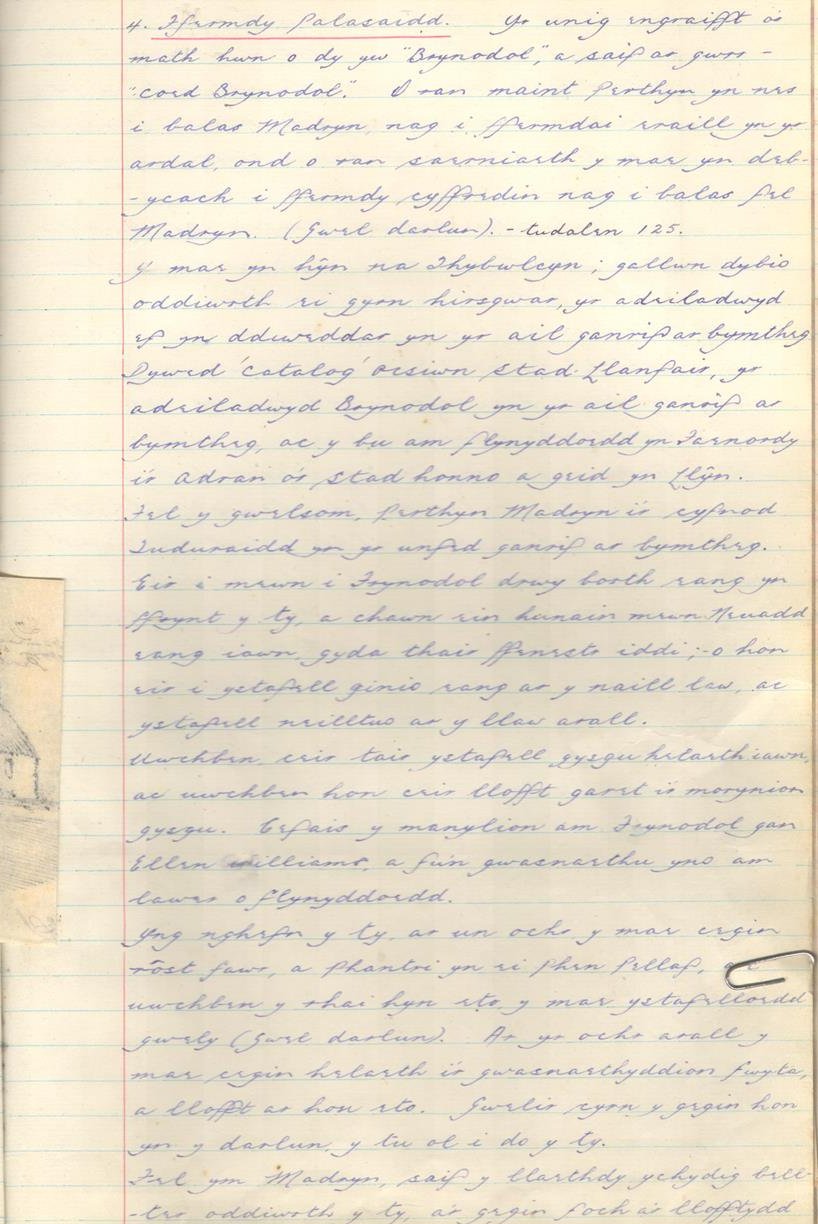 4. Ffermdy Palasaidd. Yr unig engraifft o'r
math hwn o dy yw "Brynodol", a saif ar gwrr -
"coed Brynodol". O ran maint perthyn yn nes
i balas Madryn, nag i ffermdai eraill yn yr
ardal, ond o ran saerniaeth y mae yn deb-
-ycach i ffermdy cyffredin nag i balas fel
Madryn. (Gwel darlun). - tudalen 125.
Y mae yn hŷn na Thybwlcyn; gallwn dybio
oddiwrth ei gyrn hirsgwar, yr adeiladwyd
ef yn ddiweddar yn yr ail ganrif ar bymtheg
Dywed 'catalog' ocsiwn Stad Llanfair, yr
adeiladwyd Brynodol yn yr ail ganrif ar
bymtheg, ac y bu am flynyddoedd yn Faenordy
i'r Adran o'r Stad honno a geid yn Llŷn.
Fel y gwelsom, perthyn Madryn i'r cyfnod
Tuduraidd yn yr unfed ganrif ar bymtheg.
Eir i mewn i Frynodol drwy borth eang yn
ffrynt y ty, a chawn ein hunain mewn Neuadd
eang iawn, gyda thair ffenestr iddi;-o hon
eir i ystafell ginio eang ar y naill law, ac
ystafell neilltuo ar y llaw arall.
Uwchben, ceir tair ystafell gysgu helaeth iawn,
ac uwchben hon ceir llofft garet i'r morynion
gysgu. Cefais y manylion am Frynodol gan
Ellen Williams, a fu'n gwasnaethu yno am
lawer o flynyddoedd.
Yng nghefn y ty, ar un ochr y mae cegin
rôst fawr, a phantri yn ei phen pellaf,
uwchben y rhai hyn eto y mae ystafelloedd
gwely (Gwel darlun). Ar yr ochr arall y
mae cegin helaeth i'r gwasnaethyddion fwyta,
a llofft ar hon eto. Gwelir cyrn y gegin hon
yn y darlun, y tu ol i do y ty.
Fel ym Madryn, saif y llaethdy ychydig bell-
-ter oddiwrth y ty, a'r gegin foch a'r llofftydd